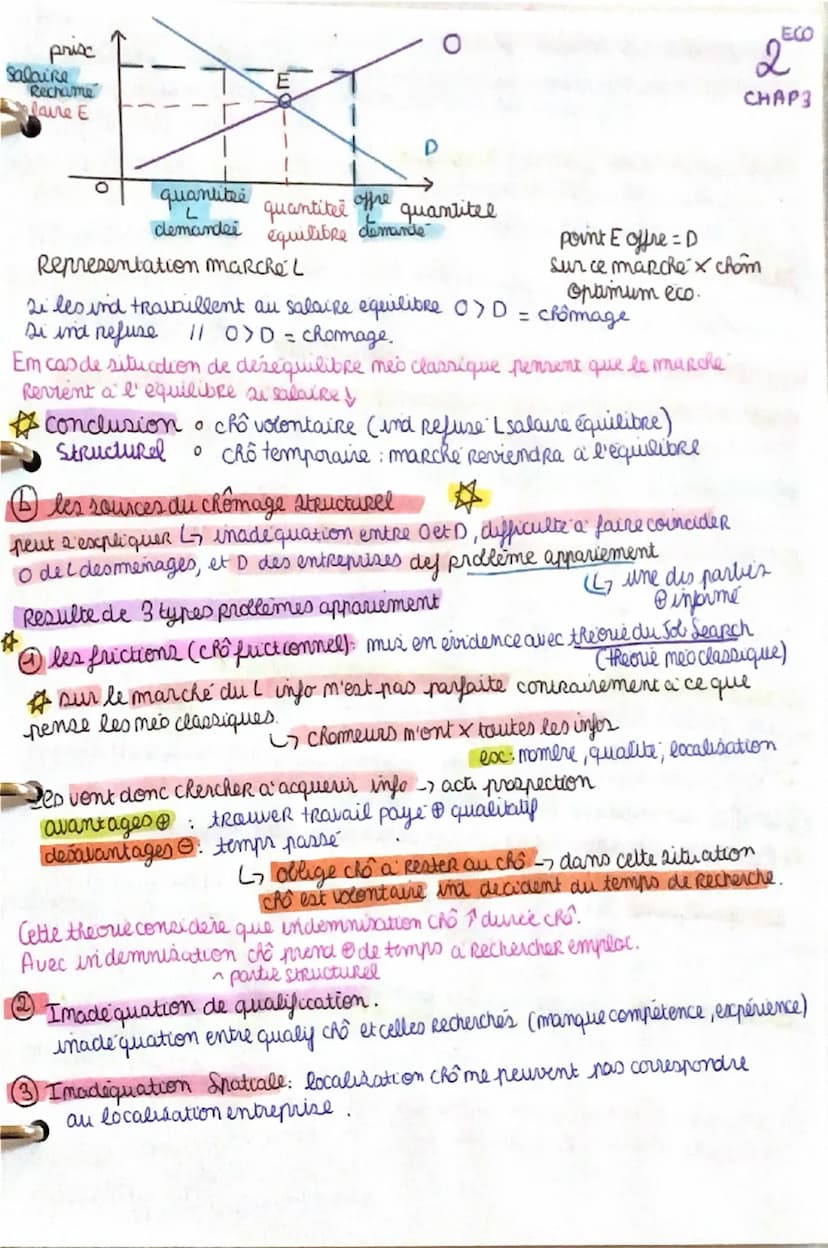 ECO
2
CHAP3
prix
O
salaire
Réclamé
E
laire E
D
O
quantité
L
demandée
quantité
équilibre
offre
demandé
quantitée
point E offre = D
sur ce marché x chôm
Optimum eco.
Représentation marché L
Si les ind travaillent au salaire équilibre O > D = chômage
Si ind refuse // O > D = chomage.
Em cas de situation de déséquilibre néo classique pensent que le marché
Revient à l'équilibre si salaire ↓
Conclusion o chô volontaire (ind refuse L salaire équilibre)
Structurel o chô temporaire : marché reviendra à l'équilibre
b les sources du chômage structurel
peut s'expliquer ↳ inadéquation entre O et D, difficulté à faire coincider
O de L des ménages, et D des entreprises def problème appariement
↳ une des parties
⊕ informé
Résulte de 3 types problèmes appariement
1 les frictions (chô frictionnel): mis en évidence avec théorie du Job Search
(théorie néoclassique)
sur le marché du L info n'est pas parfaite contrairement à ce que
pense les néo classiques.
↳ chomeurs n'ont x toutes les infos
ex: nombre, qualité, localisation
Ils vont donc chercher à acquérir info → acti prospection
avantages ⊕ : trouver travail payé ⊕ qualitatif
désavantages ⊖ : temps passé
↳ oblige chô à rester au chô ↳ dans cette situation
chô est volontaire ind décident du temps de recherche.
Cette théorie considère que indemnisation chô ↗ durée chô.
Avec indemnisation chô prend ⊕ de temps à rechercher emploi.
^ partie structurel
2 Inadéquation de qualification.
inadéquation entre qualif chô et celles recherchés (manque compétence, expérience)
3 Inadéquation Spatiale: localisation chô ne peuvent pas correspondre
au localisation entreprise.